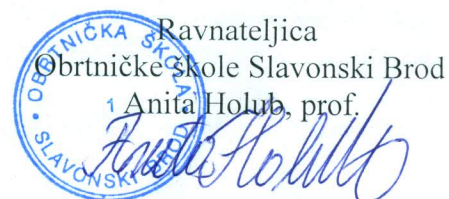 Ravnateljica
Obrtničke škole Slavonski Brod
Anita Holub, prof.
OBRTNIČKA ŠKOLA
1
SLAVONSKI BROD
Anita Holub